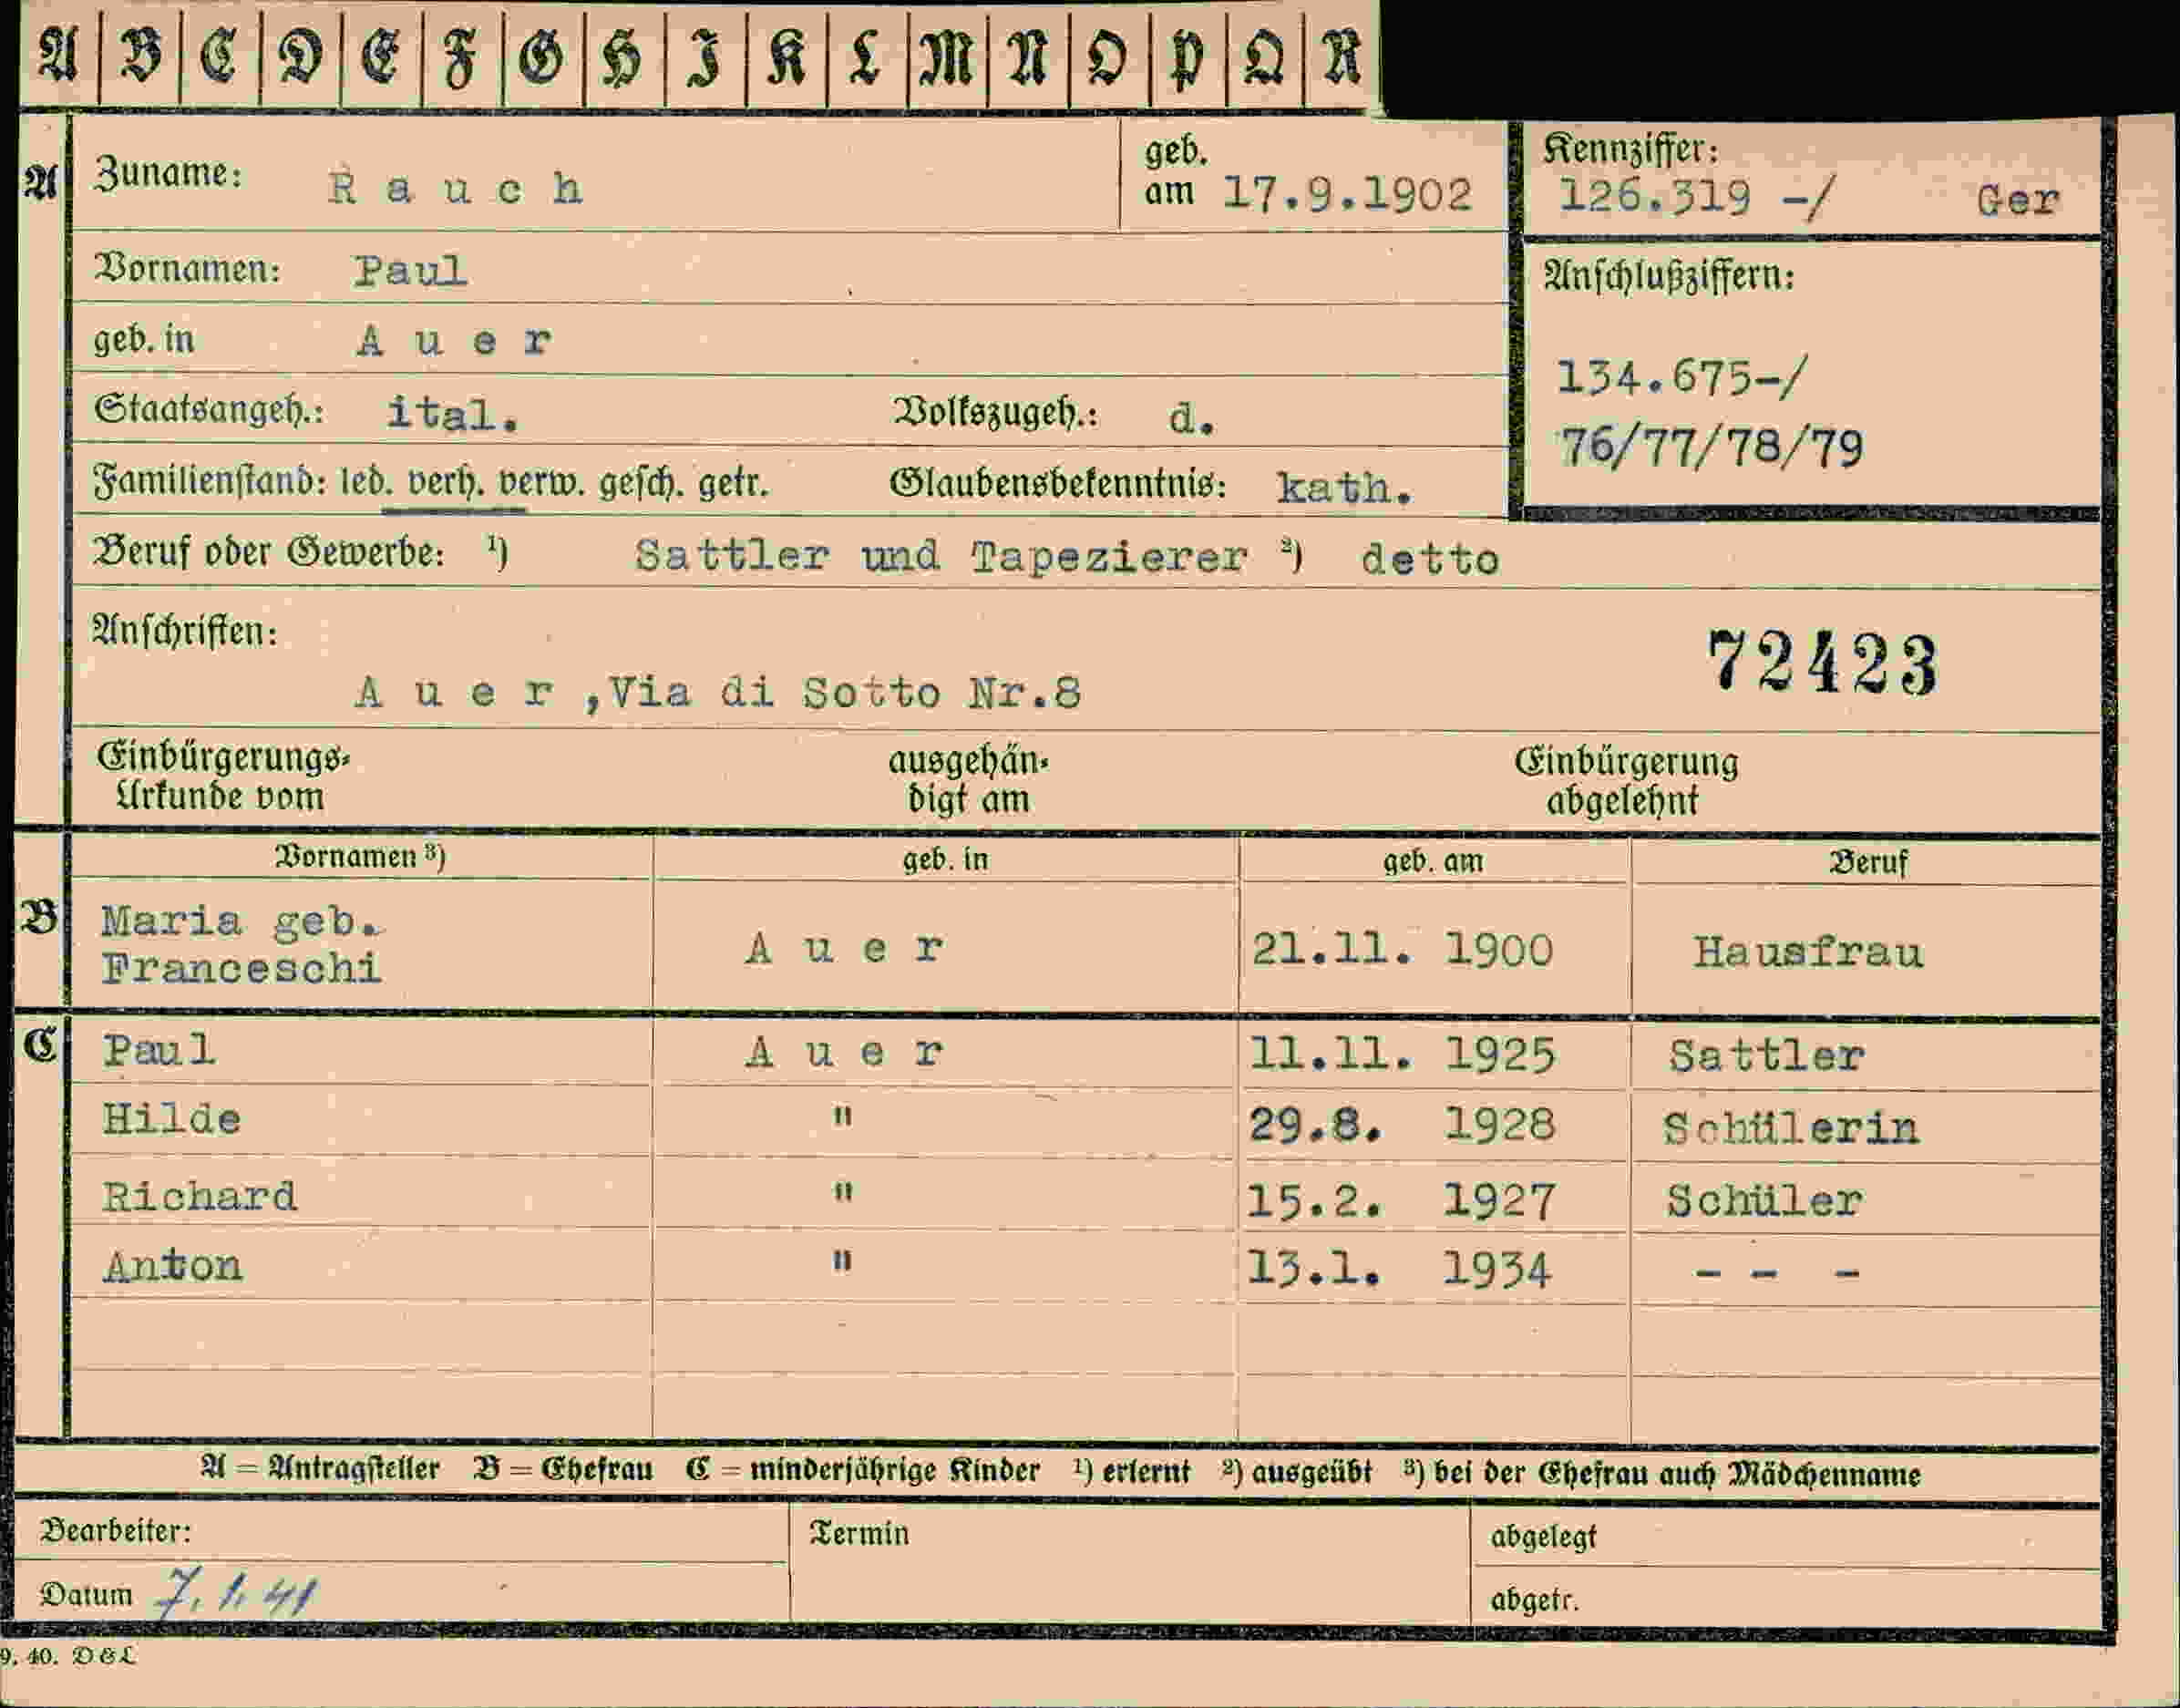 A B C D E F G H I K L M N O P Q R
A Zuname: Rauch geb. am 17.9.1902 Kennziffer: 126.319 -/ Ger
Vornamen: Paul Anschlußziffern:
geb. in Auer 134.675-/
Staatsangeh.: ital. Volkszugeh.: d. 76/77/78/79
Familienstand: led. verh. verw. gesch. getr. Glaubensbekenntnis: kath.
Beruf oder Gewerbe: ¹) Sattler und Tapezierer ²) detto
Anschriften: 72423
Auer, Via di Sotto Nr.8
Einbürgerungs- ausgehän- Einbürgerung
Urkunde vom digt am abgelehnt
Vornamen ³) geb. in geb. am Beruf
B Maria geb. Franceschi Auer 21.11. 1900 Hausfrau
C Paul Auer 11.11. 1925 Sattler
Hilde " 29.8. 1928 Schülerin
Richard " 15.2. 1927 Schüler
Anton " 13.1. 1934 - - -
A = Antragsteller B = Ehefrau C = minderjährige Kinder ¹) erlernt ²) ausgeübt ³) bei der Ehefrau auch Mädchenname
Bearbeiter: Termin abgelegt
Datum 7.1.41 abgetr.
9. 40. D&L